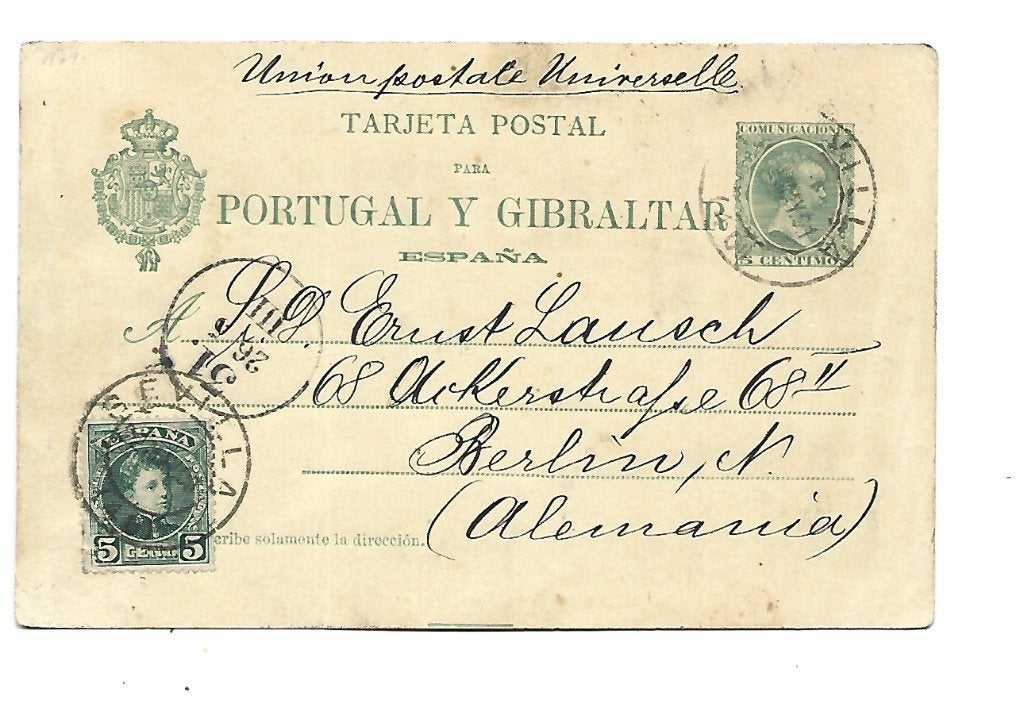 Union postale Universelle
TARJETA POSTAL
PARA
PORTUGAL Y GIBRALTAR
ESPAÑA
COMUNICACION
5 CENTIMO
VILLA
A S. D. Ernst Lausch
68 Ackerstraße 68 II
Berlin, N.
(Alemania)
26
III
SEVILLA
ESPAÑA
5 5
cribe solamente la dirección.